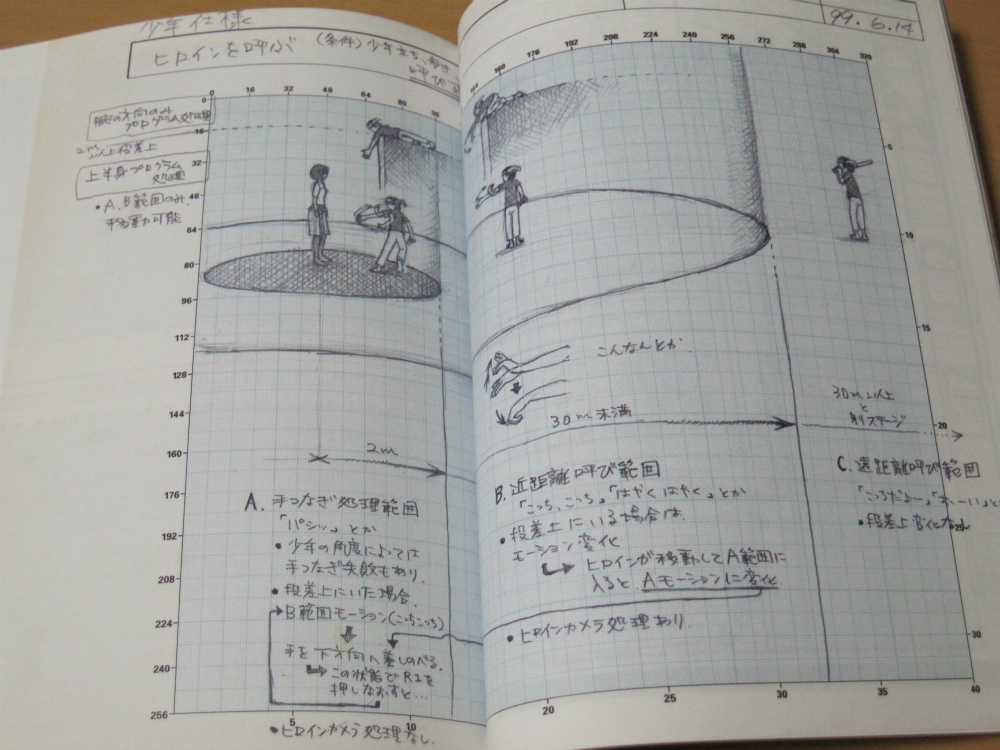 少年仕様
99.6.14
ヒロインを呼ぶ (条件)少年立ち、歩き
0 16 32 48 64 80 96
144 160 176 192 208 224 240 256 272 288 304 320 336
0
16
32
48
64
80
96
112
128
144
160
176
192
208
224
240
256
腕の方向のみ
プログラム処理
2m以上段差上
上半身プログラム
処理
・A、B範囲のみ
移動可能
2m
こんなんとか
30m未満
30m以上
と
別ステージ
A. 手つなぎ処理範囲
「パシッ」とか
・少年の角度によっては
手つなぎ失敗もあり。
・段差上にいた場合。
B範囲モーション(こっちこっち)
手を下方向へ差しのべる。
この状態でR1を
押しなおすと…
・ヒロインカメラ処理なし。
B. 近距離呼び範囲
「こっち、こっち」「はやくはやく」とか
・段差上にいる場合は
モーション変化
ヒロインが移動してA範囲に
入るとAモーションに変化
・ヒロインカメラ処理あり
C. 遠距離呼び範囲
「こっちだよー」「おーい」と
・段差上変化なし
5
10
15
20
30
5 10
20 25 30 35 40